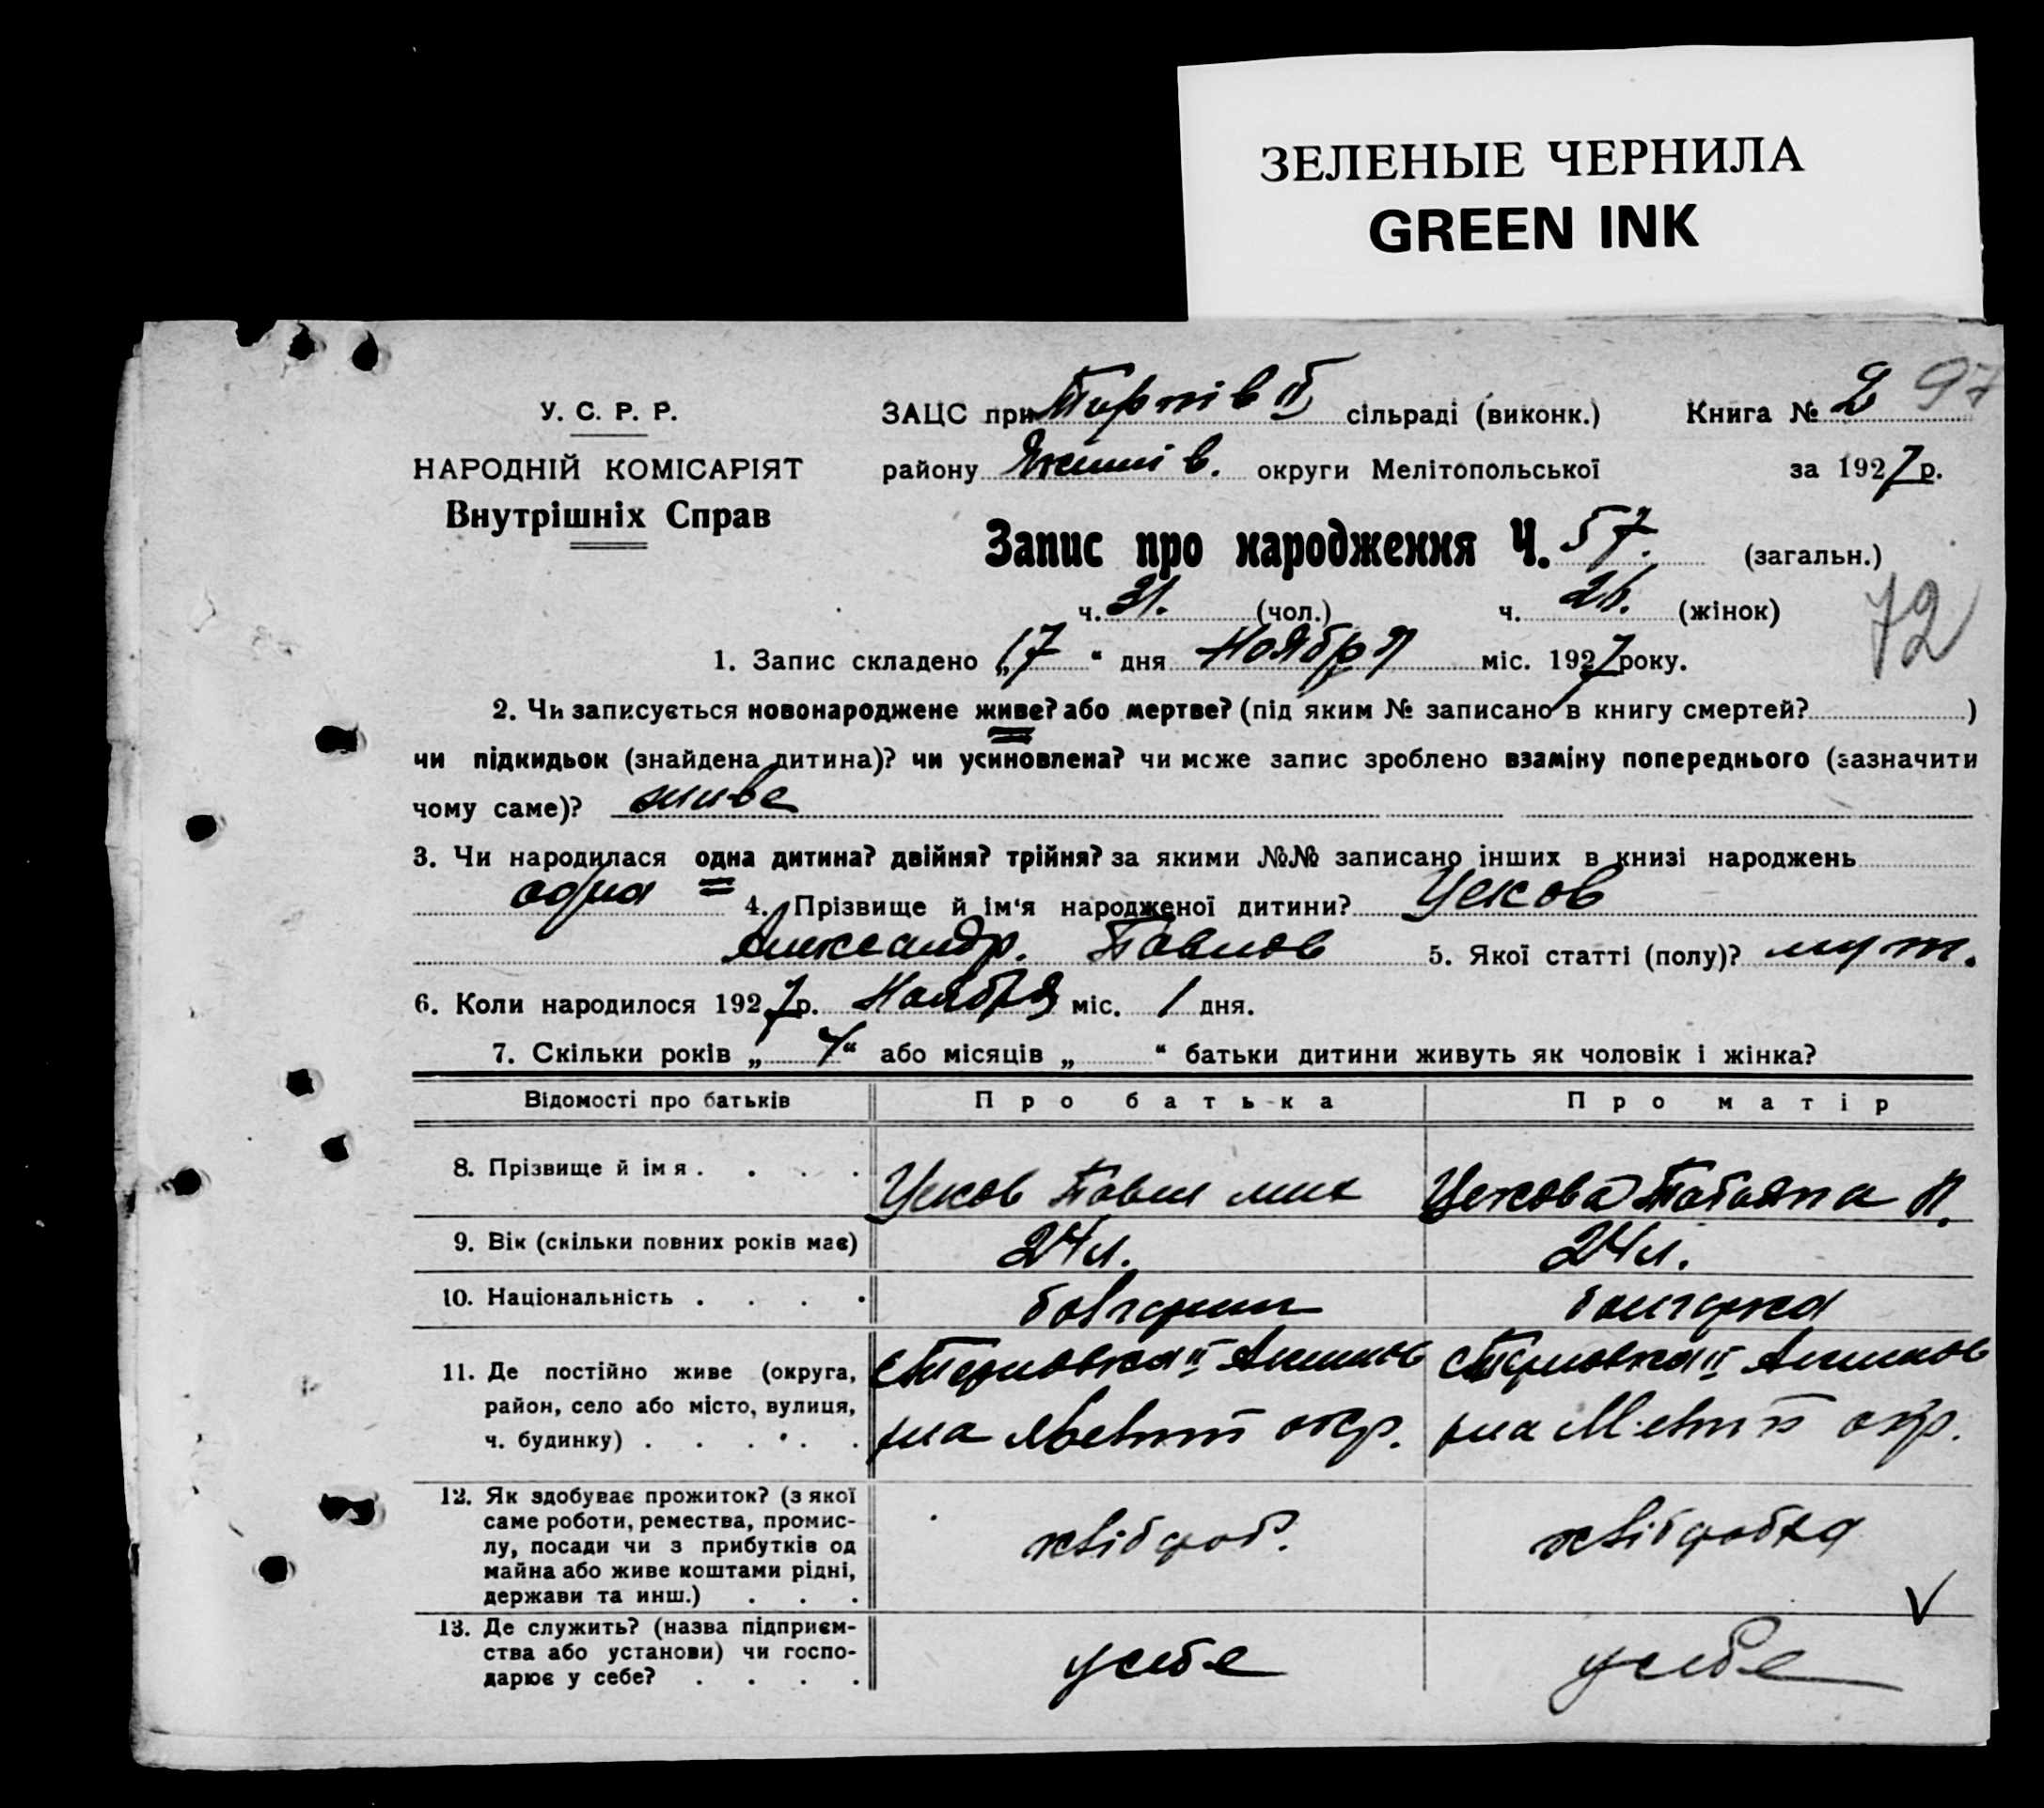 ЗЕЛЕНЫЕ ЧЕРНИЛА
GREEN INK
У. С. Р. Р.
НАРОДНІЙ КОМІСАРІЯТ
Внутрішніх Справ
ЗАЦС при Тернів II сільраді (виконк.) Книга № 2 97
району округи Мелітопольської за 1927 р.
Запис про народження Ч. 57. (загальн.)
ч. 31. (чол.) ч. 26. (жінок) 72
1. Запис складено „17“ дня Ноября міс. 1927 року.
2. Чи записується новонароджене живе? або мертве? (під яким № записано в книгу смертей? )
чи підкидьок (знайдена дитина)? чи усиновлена? чи може запис зроблено взаміну попереднього (зазначити
чому саме)? живе
3. Чи народилася одна дитина? двійня? трійня? за якими №№ записано інших в книзі народжень
одна 4. Прізвище й ім‘я народженої дитини? Цеков
Александр. Павлов 5. Якої статті (полу)? муж.
6. Коли народилося 1927 р. Ноября міс. 1 дня.
7. Скільки років „ “ або місяців „ “ батьки дитини живуть як чоловік і жінка?
Відомості про батьків Про батька Про матір
8. Прізвище й ім я . . . . Цеков Павел мих Цекова Татьяна П.
9. Вік (скільки повних років має) 24 л. 24 л.
10. Національність . . . . болгарин болгарка
11. Де постійно живе (округа, с Терновка II Акимов с Терновка II Акимов
район, село або місто, вулиця,
ч. будинку) . . . . . . р-на Меліт окр. р-на Меліт окр.
12. Як здобуває прожиток? (з якої
саме роботи, ремества, промис-
лу, посади чи з прибутків од хлібороб. хлібробка
майна або живе коштами рідні,
держави та инш.) . . .
13. Де служить? (назва підприєм-
ства або установи) чи госпо- у себе у себе
дарює у себе? . . . .